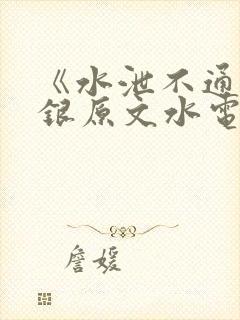 《水泄不通
银原文水電
詹媛